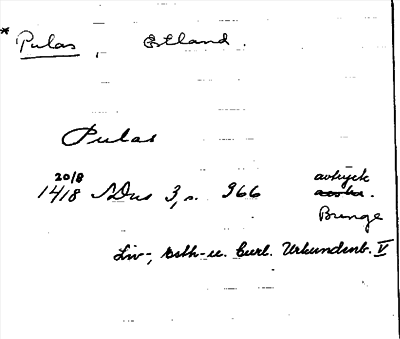 * Pulas, Estland.
Pulas
20/8
1418 SDns 3, s. 966 avtryck
avskr.
Bunge
Liv-, Esth- u. Curl. Urkundenb. V